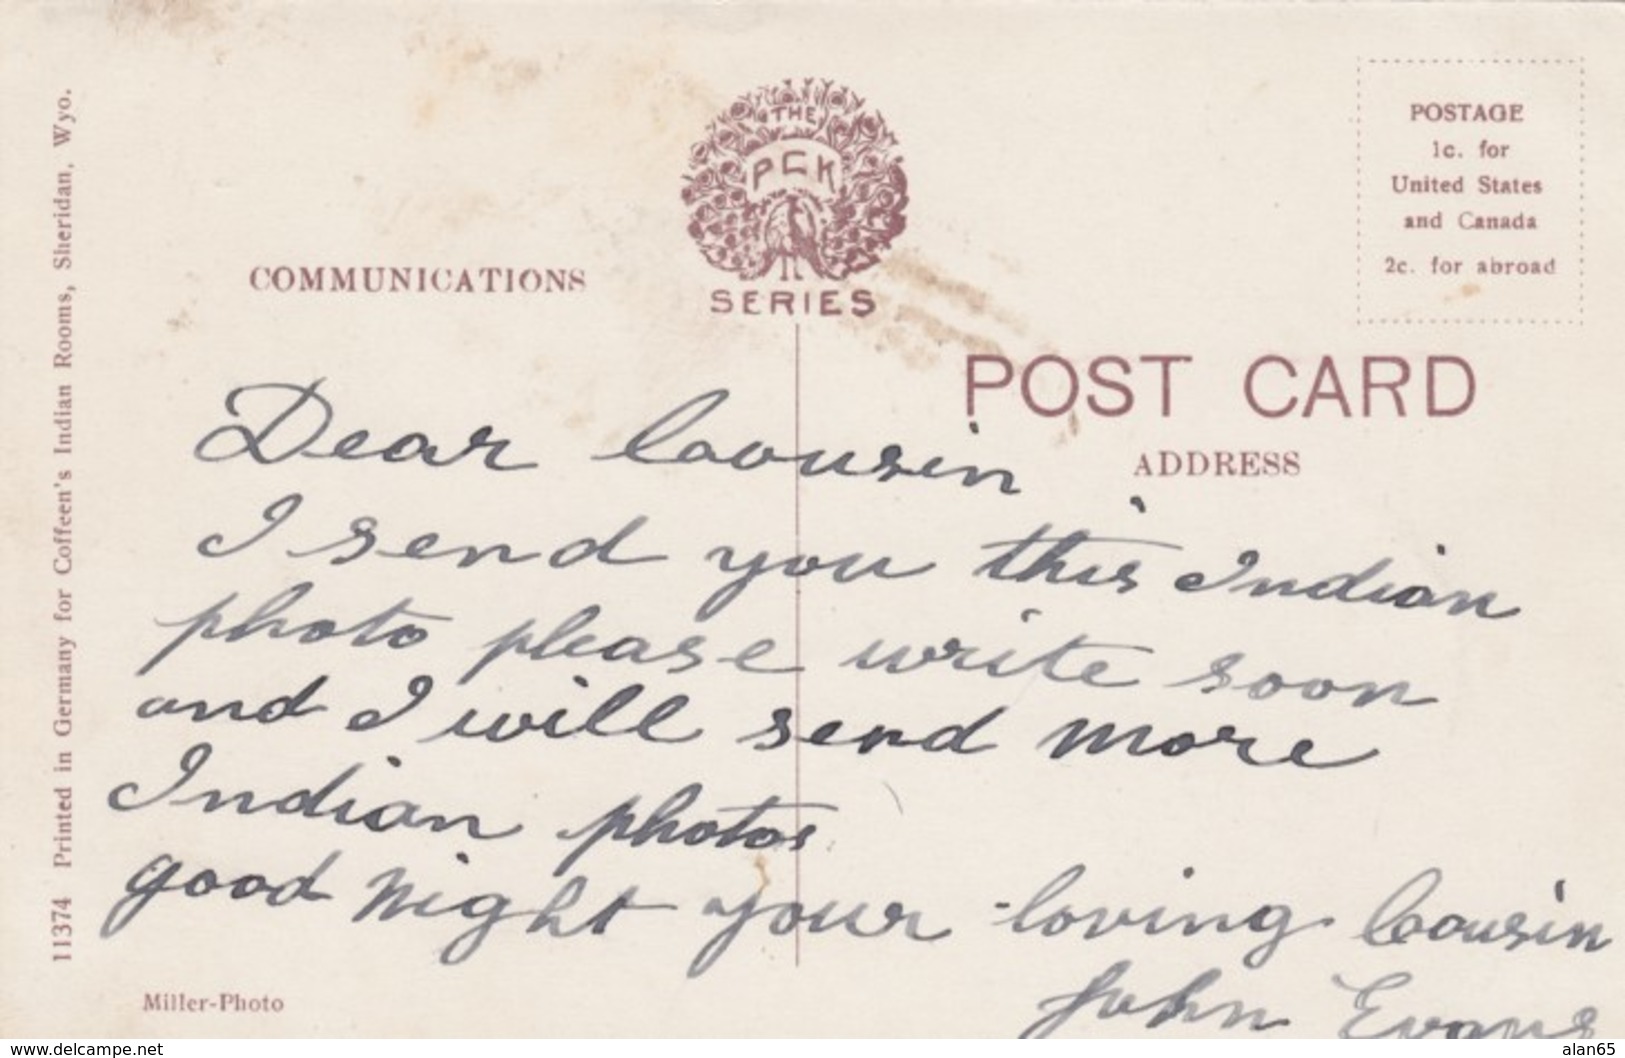 11374 Printed in Germany for Coffeen's Indian Rooms, Sheridan, Wyo.
THE
PCK
SERIES
COMMUNICATIONS
POSTAGE
1c. for
United States
and Canada
2c. for abroad
POST CARD
ADDRESS
Dear Cousin
I send you this Indian
photo please write soon
and I will send more
Indian photos
good night your loving Cousin
John Evans
Miller-Photo
www.delcampe.net
alan65